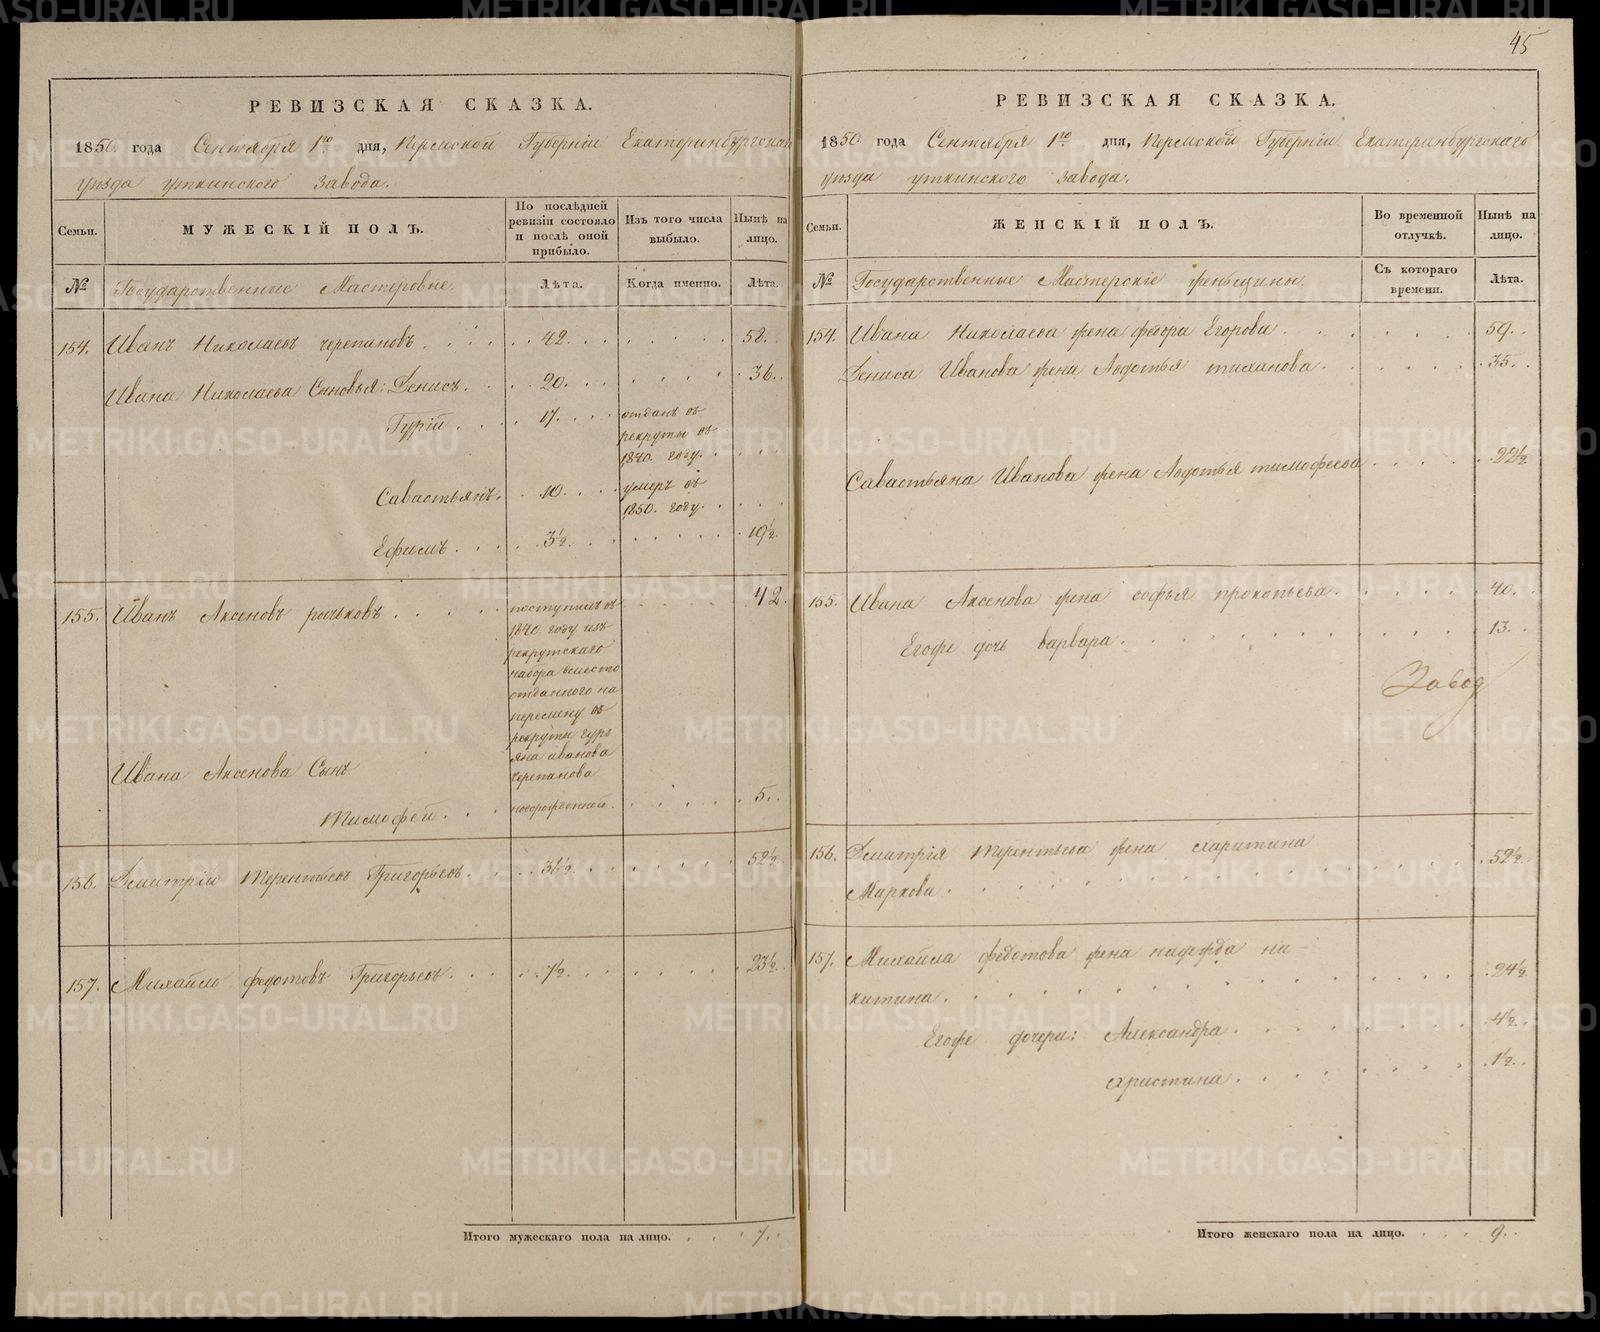 45
РЕВИЗСКАЯ СКАЗКА.
1850 года Сентября 1го дня, Пермской Губерніи Екатеринбургскаго
уѣзда уткинского завода.
Семьи.
МУЖЕСКІЙ ПОЛЪ.
По послѣдней ревизіи состояло и послѣ оной прибыло.
Изъ того числа выбыло.
Нынѣ на лицо.
№
Государственные Мастеровые.
Лѣта.
Когда именно.
Лѣта.
154. Иванъ Николаевъ черепановъ 42. 58.
Ивана Николаева Сыновья: Денисъ. 20. 36.
Гурій 17. отданъ въ
рекруты въ
1840. году.
Савастьянъ. 10. умеръ въ
1850. году.
Ефимъ 3½. 19½
155. Иванъ Аксеновъ рычковъ поступилъ въ 42.
1840 году изъ
рекрутскаго
набора вместо
отданного на
перемену въ
рекруты гурь
яна иванова
черепанова
Ивана Аксенова Сынъ
Тимофей новорожденной. 5.
156. Дмитрій Терентьевъ Григорьевъ. 36½. 52½.
157. Михайло федотовъ Григорьевъ. 7½. 23½.
Итого мужескаго пола на лицо. 7.
РЕВИЗСКАЯ СКАЗКА.
1850 года Сентября 1го дня, Пермской Губерніи Екатеринбургскаго
уѣзда уткинского завода.
Семьи.
ЖЕНСКІЙ ПОЛЪ.
Во временной отлучкѣ.
Нынѣ на лицо.
№
Государственные Мастерскіе женщины.
Съ котораго времени.
Лѣта.
154. Ивана Николаева жена федора Егорова 59.
Дениса Иванова жена Авдотья тиханова. 35.
Савастьяна Иванова жена Авдотья тимофеева 22½.
155. Ивана Аксенова жена софья прокопьева. 40.
Егоже дочь варвара. 13.
Завод
156. Дмитрія терентьева жена харитина 52½.
Маркова.
157. Михайла федотова жена надежда ни-
китина. 24½.
Егоже дочери: Александра. 4½.
христина. 1½.
Итого женскаго пола на лицо. 9.
METRIKI.GASO-URAL.RU